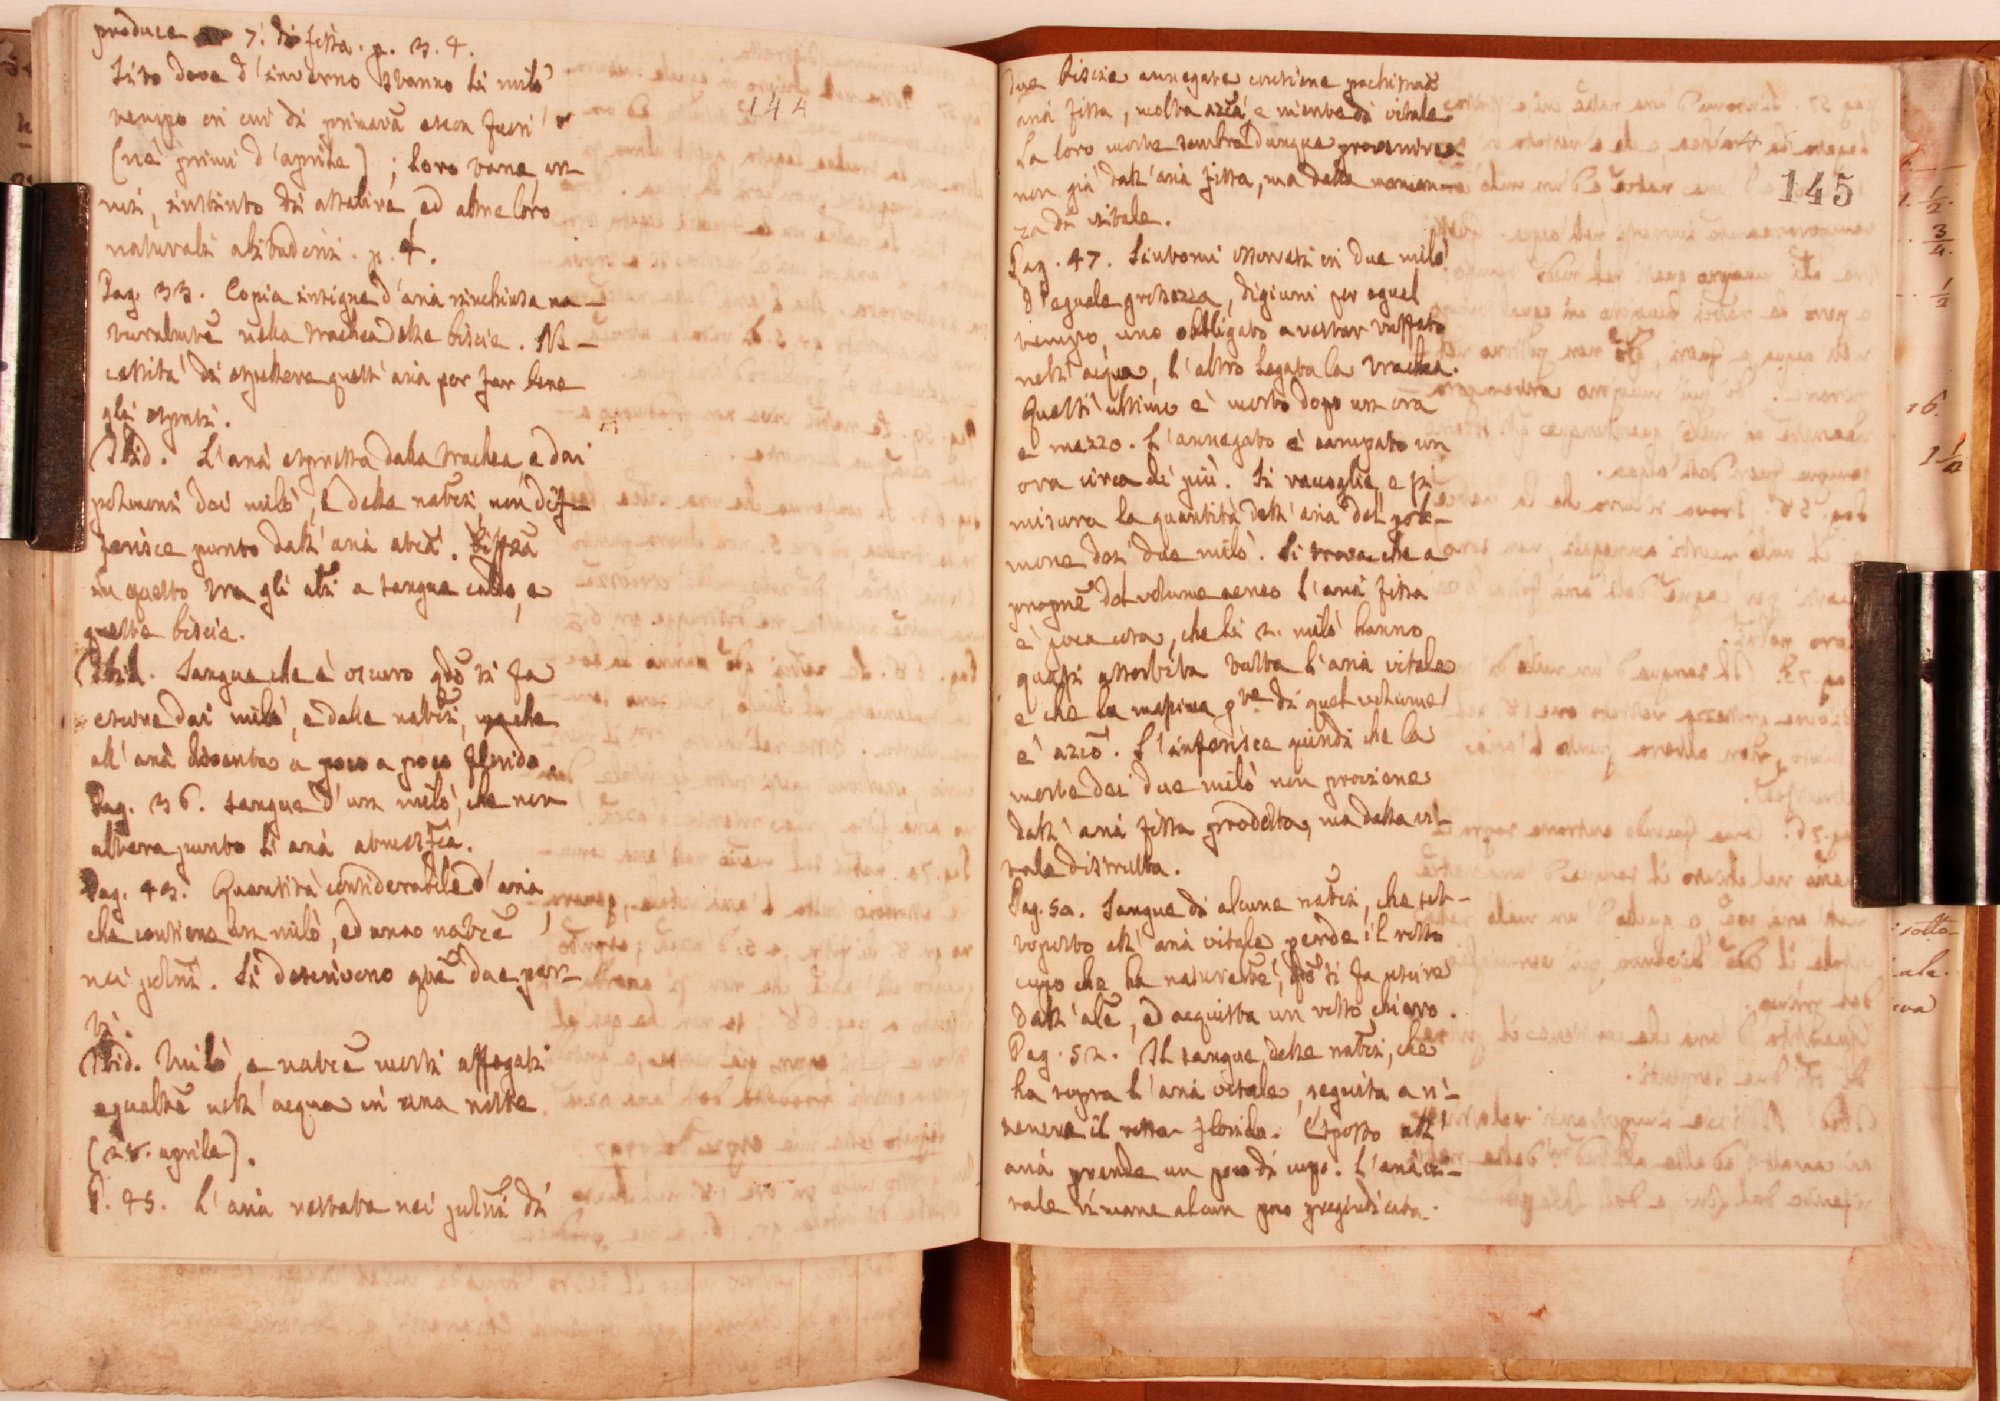 produce 7: di fissa. p. 3. 4.
Sito dove d'inverno stanno li milò
tempo in cui di primavã escon fuori
(nè primi d'aprile); loro varie un-
naturali abitudini. p. 4.
144
Pag. 33. Copia insigne d'aria rinchiusa na-
turalmtẽ nella trachea delle biscie. Ne-
cessità di espellere quest'aria per far bene
gli esprti.
Ibid. L'aria espressa dalla trachea e dai
polmoni dei milò, e delle natrici non dif-
ferisce punto dall'aria atcã. Diffzã
in questo tra gli alri a sangue caldo, e
queste biscie.
Ibid. Sangue che è oscuro qdõ si fa
escire dai milò, e dalle natrici, ma che
all'aria diventa a poco a poco florido.
Pag. 36. Sangue d'un milò, che non
altera punto l'aria atmosfcã.
Pag. 43. Quantità considerabile d'aria,
che contiene un milò, ed una natrcẽ
nei polmñi. Si descrivono qsẽ due par-
ti.
Ibid. Milò, e natrcẽ morti affogati
egualmẽ nell'acqua in una notte
(28. aprile).
P. 45. L'aria restata nei pulmñi di
due biscie annegate contiene pochissima
aria fissa, molta azcã, e niente di vitale
La loro morte sembra dunque provenire
non già dall'aria fissa, ma dalla mancan-
za di vitale.
145
Pag. 47. Sintomi osservati in due milò
d'eguale grossezza, digiuni per egual
tempo, uno obbligato a restar tuffato
nell'acqua, l'altro legata la trachea.
Quest'ultimo è morto dopo un ora
e mezzo. L'annegato è campato un
ora circa di più. Si raccoglie, e si
misura la quantità dell'aria del pol-
mone dei due milò. Si trova che a
propnẽ del volume aereo l'aria fissa
è poca cosa, che li 2. milò hanno
quasi assorbita tutta l'aria vitale
e che la massima pte di quel volume
è azcõ. S'inferisce quindi che la
morte dei due milò non proviene
dall'aria fissa prodotta, ma dalla vi-
tale distrutta.
Pag. 50. Sangue di alcune natrici, che sot-
toposto all'aria vitale perde il rosso
cupo che ha naturalmtẽ, qdõ si fa uscire
dall'alẽ, ed acquista un rosso chiaro.
Pag. 52. Il sangue delle natrici, che
ha sopra l'aria vitale, seguita a ri-
tenere il rosso florido. Esposto all'
aria prende un poco di cupo. L'aria vi-
tale rimane alcun poco pregiudicata.